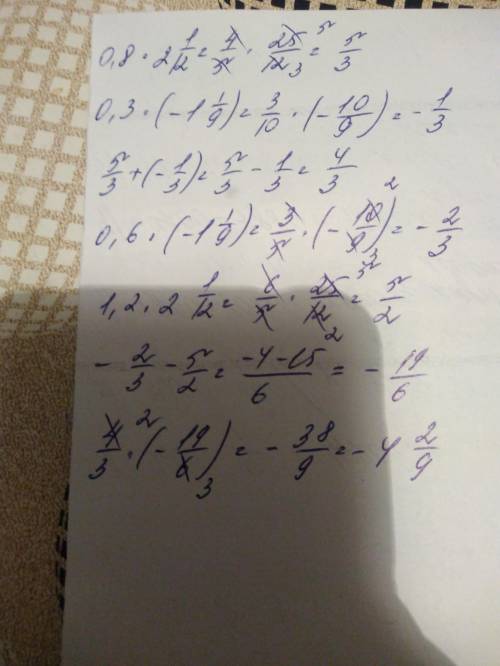 0,8 · 2 1/12 = 4/5 · 25/12 = 5/3
0,3 · (-1 1/9) = 3/10 · (-10/9) = -1/3
5/3 + (-1/3) = 5/3 - 1/3 = 4/3
0,6 · (-1 1/9) = 3/5 · (-10/9) = -2/3
1,2 · 2 1/12 = 6/5 · 25/12 = 5/2
-2/3 - 5/2 = -4-15/6 = -19/6
4/3 · (-19/6) = -38/9 = -4 2/9